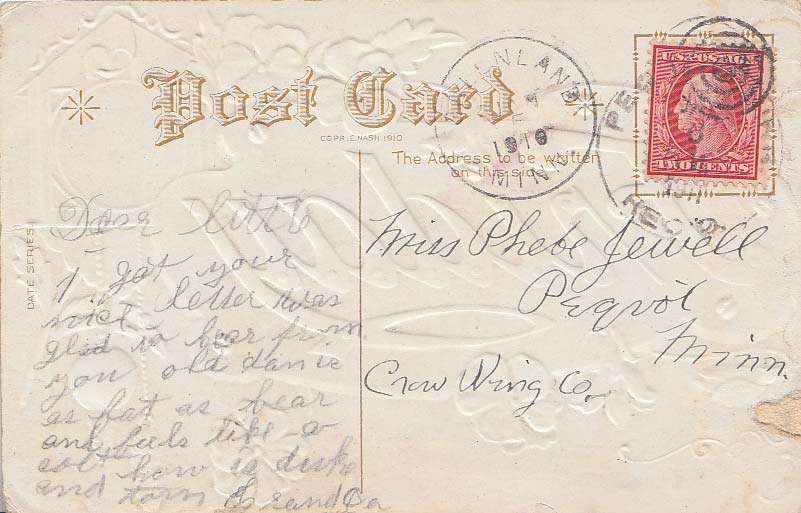 Post Card
COPR. E. NASH 1910
The Address to be written
on this side
1910
MINN
U.S. POSTAGE
TWO CENTS
REC'D
DATE SERIES 1
Dear little
I got your
nice letter was
glad to hear from
you old danie
as fat as bear
and feels like a
colt how is dick
and torn GrandPa
Miss Phebe Jewell
Peqvot
Minn.
Crow Wing Co.